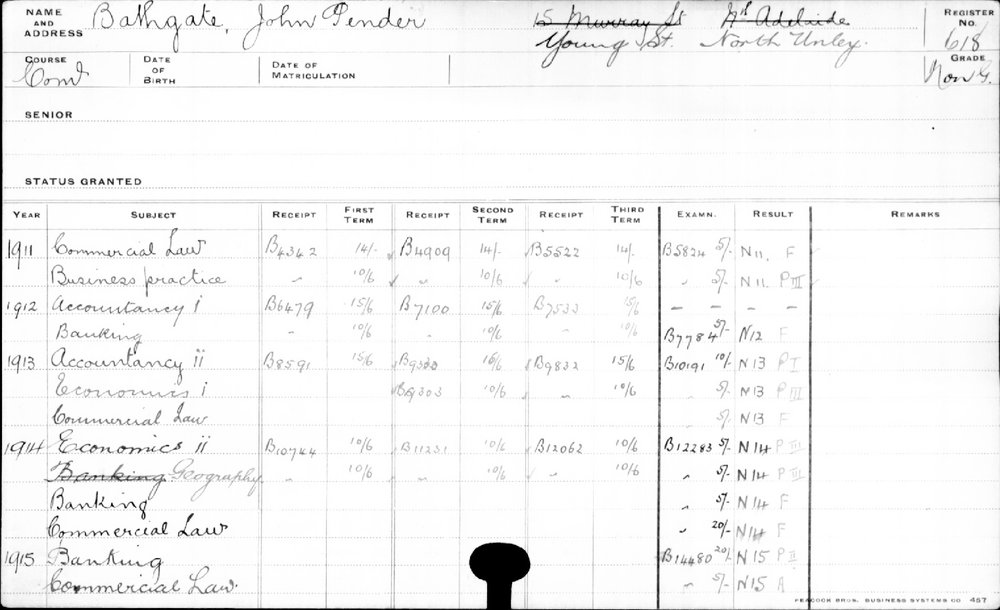 NAME AND ADDRESS Bathgate, John Pender 15 Murray St Nth Adelaide REGISTER No. 618
Young St. North Unley.
COURSE Coml DATE OF BIRTH DATE OF MATRICULATION GRADE Non G.
SENIOR
STATUS GRANTED
YEAR SUBJECT RECEIPT FIRST TERM RECEIPT SECOND TERM RECEIPT THIRD TERM EXAMN. RESULT REMARKS
1911 Commercial Law B4342 14/- B4909 14/- B5522 14/- B5824 5/- N11. F
Business practice " 10/6 " 10/6 " 10/6 " 5/- N11. P III
1912 Accountancy i B6479 15/6 B7100 15/6 B7533 15/6 - - -
Banking " 10/6 " 10/6 " 10/6 B7784 5/- N12 F
1913 Accountancy ii B8591 15/6 B9303 15/6 B9832 15/6 B10191 10/- N13 P I
Economics i B9303 10/6 " 10/6 " 5/- N13 P III
Commercial Law " 5/- N13 F
1914 Economics ii B10744 10/6 B11231 10/6 B12062 10/6 B12283 5/- N14 P III
Banking Geography " 10/6 " 10/6 " 10/6 " 5/- N14 P III
Banking " 5/- N14 F
Commercial Law " 20/- N14 F
1915 Banking B14480 20/- N15 P II
Commercial Law. " 5/- N15 A
PEACOCK BROS. BUSINESS SYSTEMS CO 457